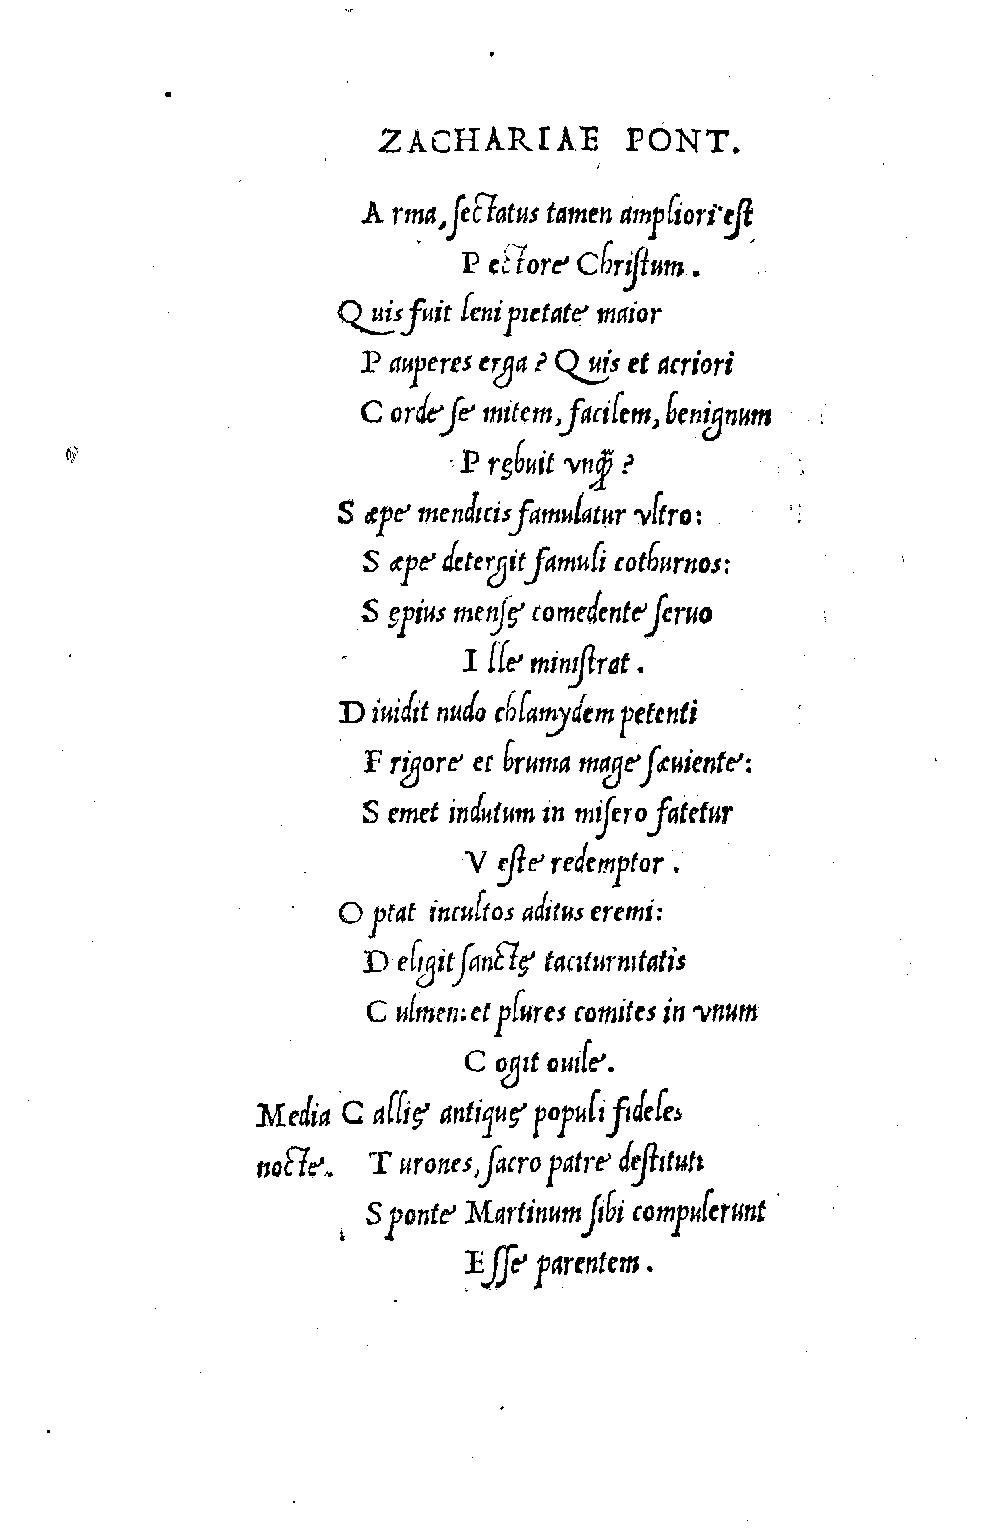 ZACHARIAE PONT.
A rma, sectatus tamen ampliori est
P ectore Christum.
Q uis fuit leni pietate maior
P auperes erga? Quis et acriori
C orde se mitem, facilem, benignum
P rębuit vnꝙ̃?
S æpe mendicis famulatur vltro:
S æpe detergit famuli cothurnos:
S ępius mensę comedente seruo
I lle ministrat.
D iuidit nudo chlamydem petenti
F rigore et bruma mage sæuiente:
S emet indutum in misero fatetur
V este redemptor.
O ptat incultos aditus eremi:
D eligit sanctę taciturnitatis
C ulmen: et plures comites in vnum
C ogit ouile.
Media C allię antiquę populi fideles
nocte. T urones, sacro patre destituti
S ponte Martinum sibi compulerunt
Esse parentem.